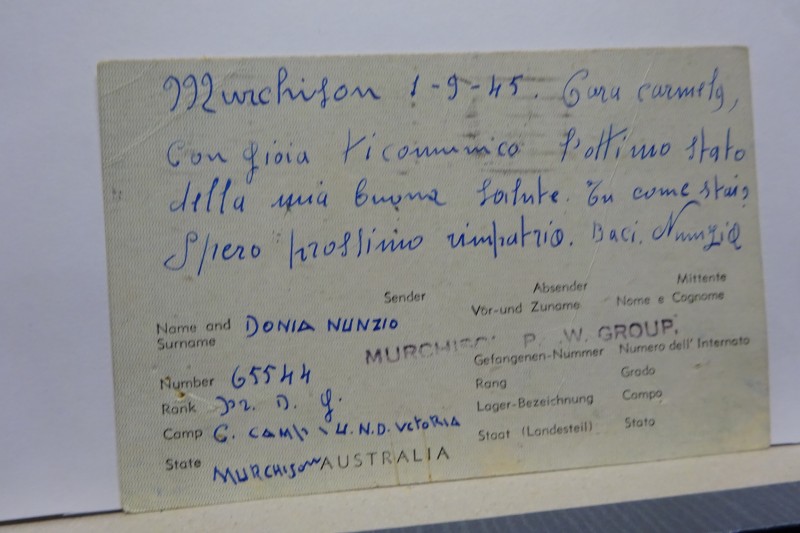 Murchison 1-9-45. Cara carmela,
Con gioia ti comunico l'ottimo stato
della mia buona salute. Tu come stai?
Spero prossimo rimpatrio. Baci. Nunzio
Sender Absender Mittente
Name and Surname DONIA NUNZIO Vor-und Zuname Nome e Cognome
MURCHISON P. W. GROUP.
Number 65544 Gefangenen-Nummer Numero dell' Internato
Rank Rang Grado
Camp C. CAMP Lager-Bezeichnung Campo
State MURCHISON AUSTRALIA Staat (Landesteil) Stato